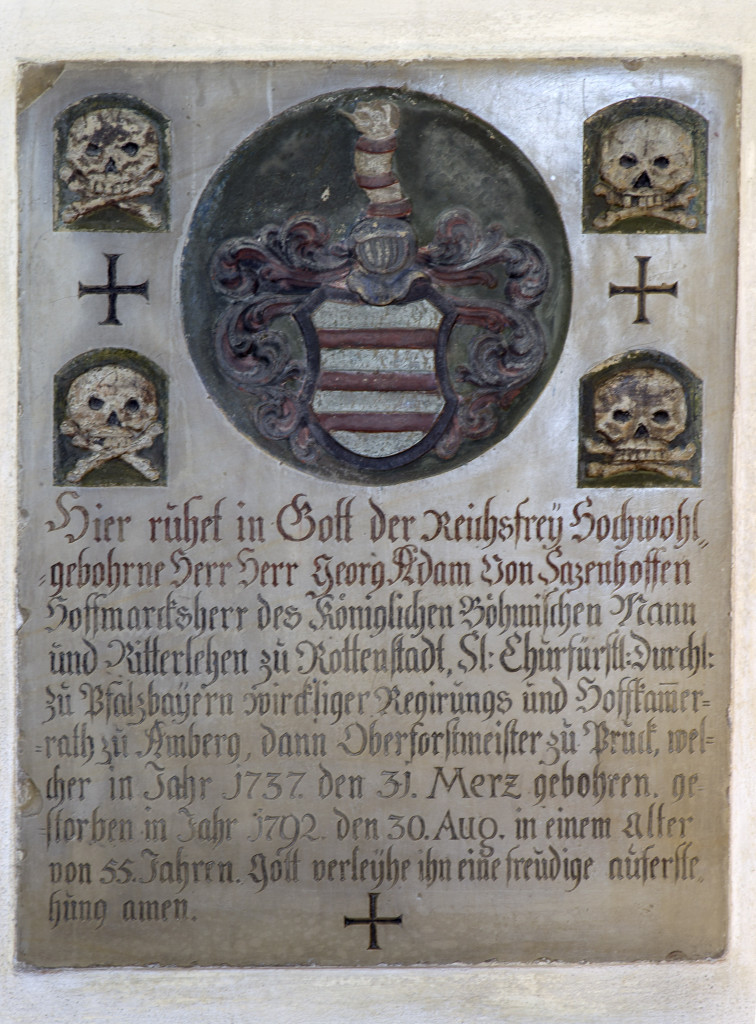 Hier ruhet in Gott der Reichsfreÿ Hochwohl„
„gebohrne Herr Herr Georg Adam Von Sazenhoffen
Hoffmarcksherr des Königlichen Böhmischen Mann
und Ritterlehen zu Rottenstadt, Sl: Churfürstl: Durchl:
zu Pfalzbayern wirckliger Regirungs und Hoffkam̅er=
=rath zu Amberg, dann Oberforstmeister zu Pruck, wel=
cher in Jahr 1737. den 31. Merz gebohren. ge=
=storben in Jahr 1792. den 30. Aug. in einem alter
von 55. Jahren. Gott verleyhe ihn eine freudige auferste„
hung amen.